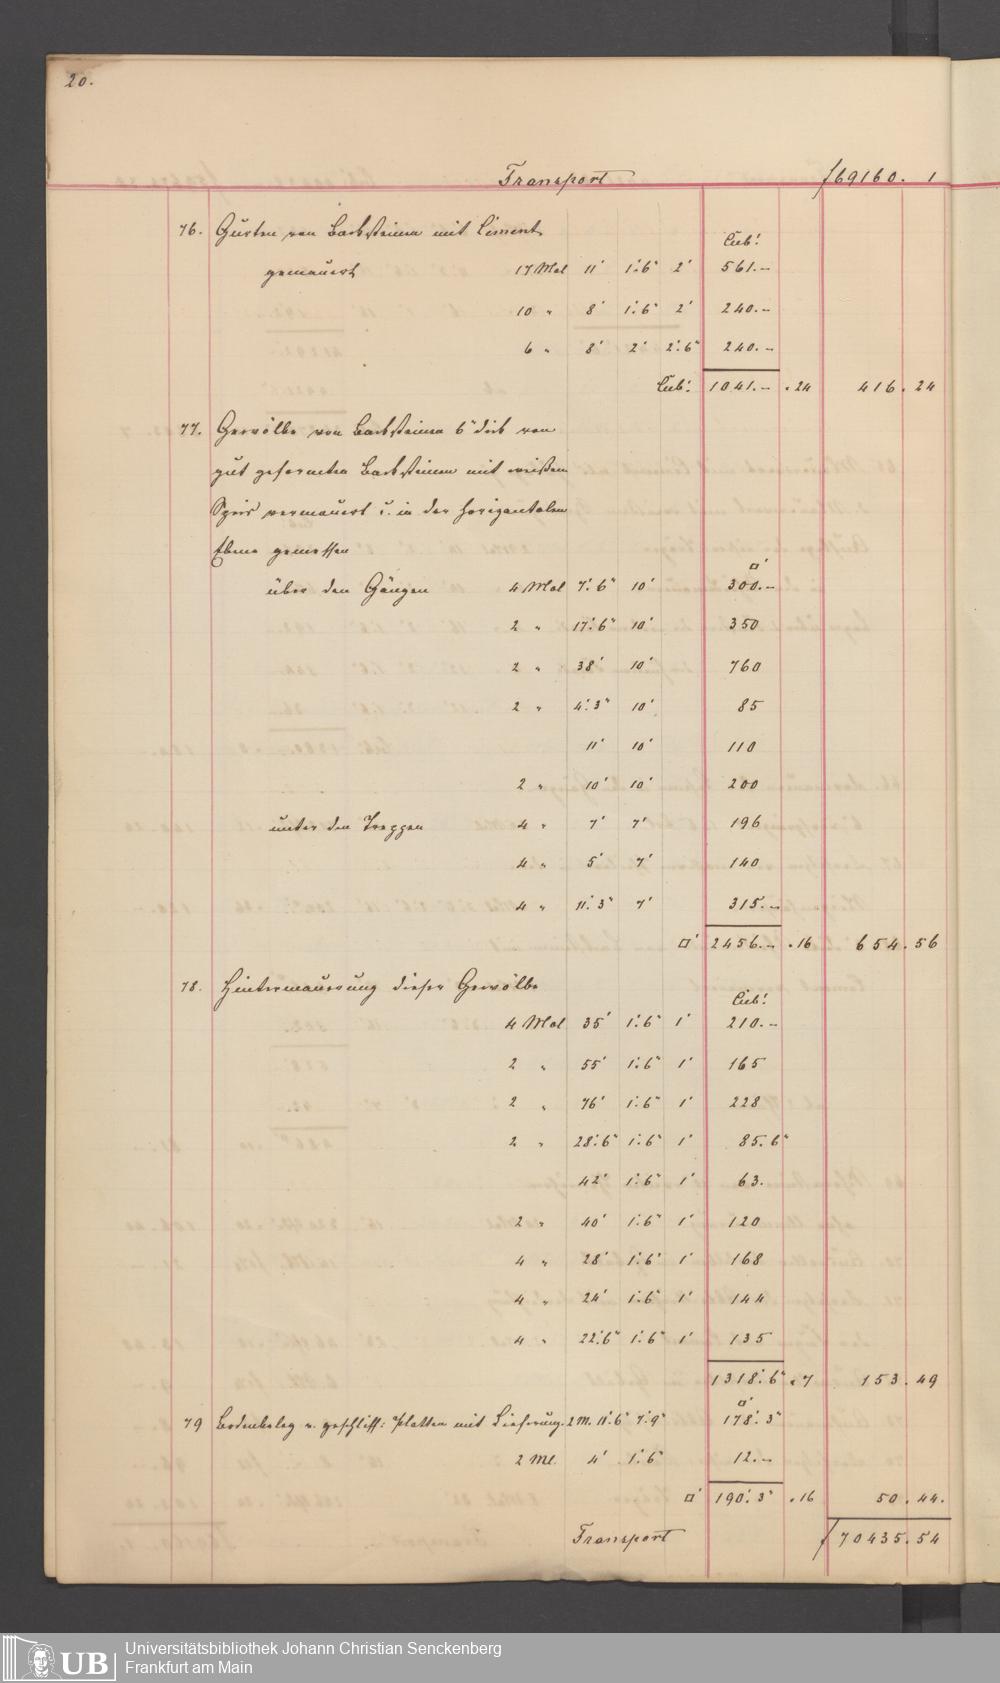 20.
Transport f 69160. 1
76. Gurten von Backsteinen mit Ciment
Cub.'
gemauert 17 Mal 11' 1'.6" 2' 561.–
10 " 8' 1'.6" 2' 240.–
6 " 8' 2' 2'.6" 240.–
Cub.' 1041.– . 24 416. 24
77. Gewölbe von Backsteinen 6" dick von
gut geformten Backsteinen mit weißem
Speis vermauert u. in der horizontalen
Ebene gemessen
□'
über den Gängen 4 Mal 7'.6" 10' 300.–
2 " 17'.6" 10' 350
2 " 38' 10' 760
2 " 4'.3" 10' 85
11' 10' 110
2 " 10' 10' 200
unter den Treppen 4 " 7' 7' 196
4 " 5' 7' 140
4 " 11'.3" 7' 315.–
□' 2456.– . 16 654. 56
78. Hintermauerung dieser Gewölbe
Cub.'
4 Mal 35' 1'.6" 1' 210.–
2 " 55' 1'.6" 1' 165
2 " 76' 1'.6" 1' 228
2 " 28'.6" 1'.6" 1' 85.6"
42' 1'.6" 1' 63.
2 " 40' 1'.6" 1' 120
4 " 28' 1'.6" 1' 168
4 " 24' 1'.6" 1' 144
4 " 22'.6" 1'.6" 1' 135
1318'.6" . 7 153. 49
□'
79 Bodenbeleg v. geschliff: Platten mit Lieferung. 2 M. 11'.6" 7'.9" 178'.3"
2 Ml. 4' 1'.6" 12.–
□' 190'.3" . 16 50. 44.
Transport f 70435. 54
UB
Universitätsbibliothek Johann Christian Senckenberg
Frankfurt am Main